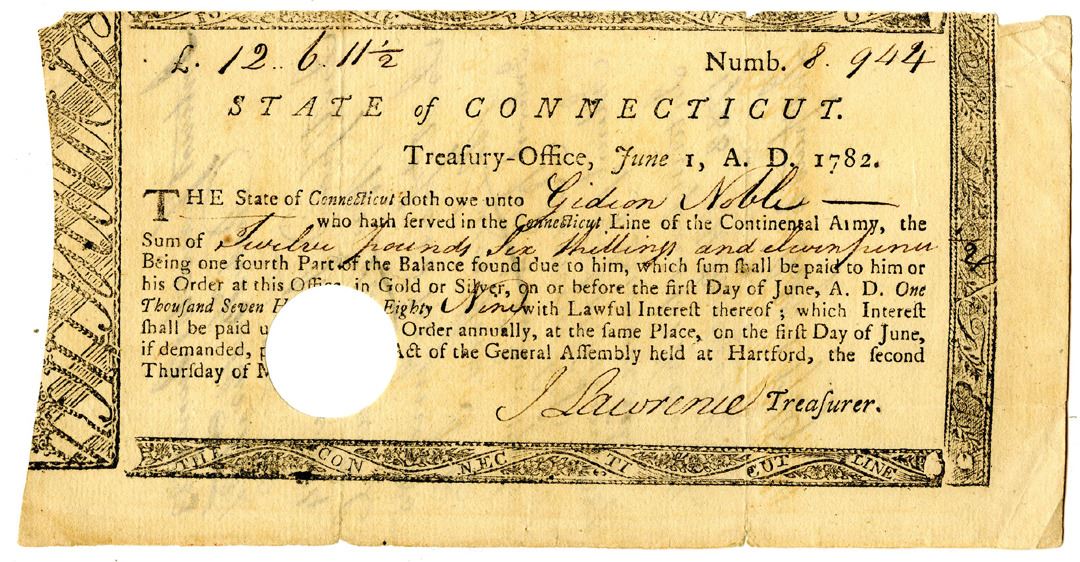 £. 12.. 6. 11½ Numb. 8. 944
STATE of CONNECTICUT.
Treaſury-Office, June 1, A. D. 1782.
THE State of Connecticut doth owe unto Gideon Noble
who hath ſerved in the Connecticut Line of the Continental Army, the
Sum of Twelve pounds Six Shillings and elevenpence
Being one fourth Part of the Balance found due to him, which ſum ſhall be paid to him or
his Order at this Office, in Gold or Silver, on or before the firſt Day of June, A. D. One
Thouſand Seven H Eighty Nine with Lawful Intereſt thereof ; which Intereſt
ſhall be paid u Order annually, at the ſame Place, on the firſt Day of June,
if demanded, p Act of the General Aſſembly held at Hartford, the ſecond
Thurſday of M
J Lawrence Treaſurer.
THE CON NEC TI CUT LINE